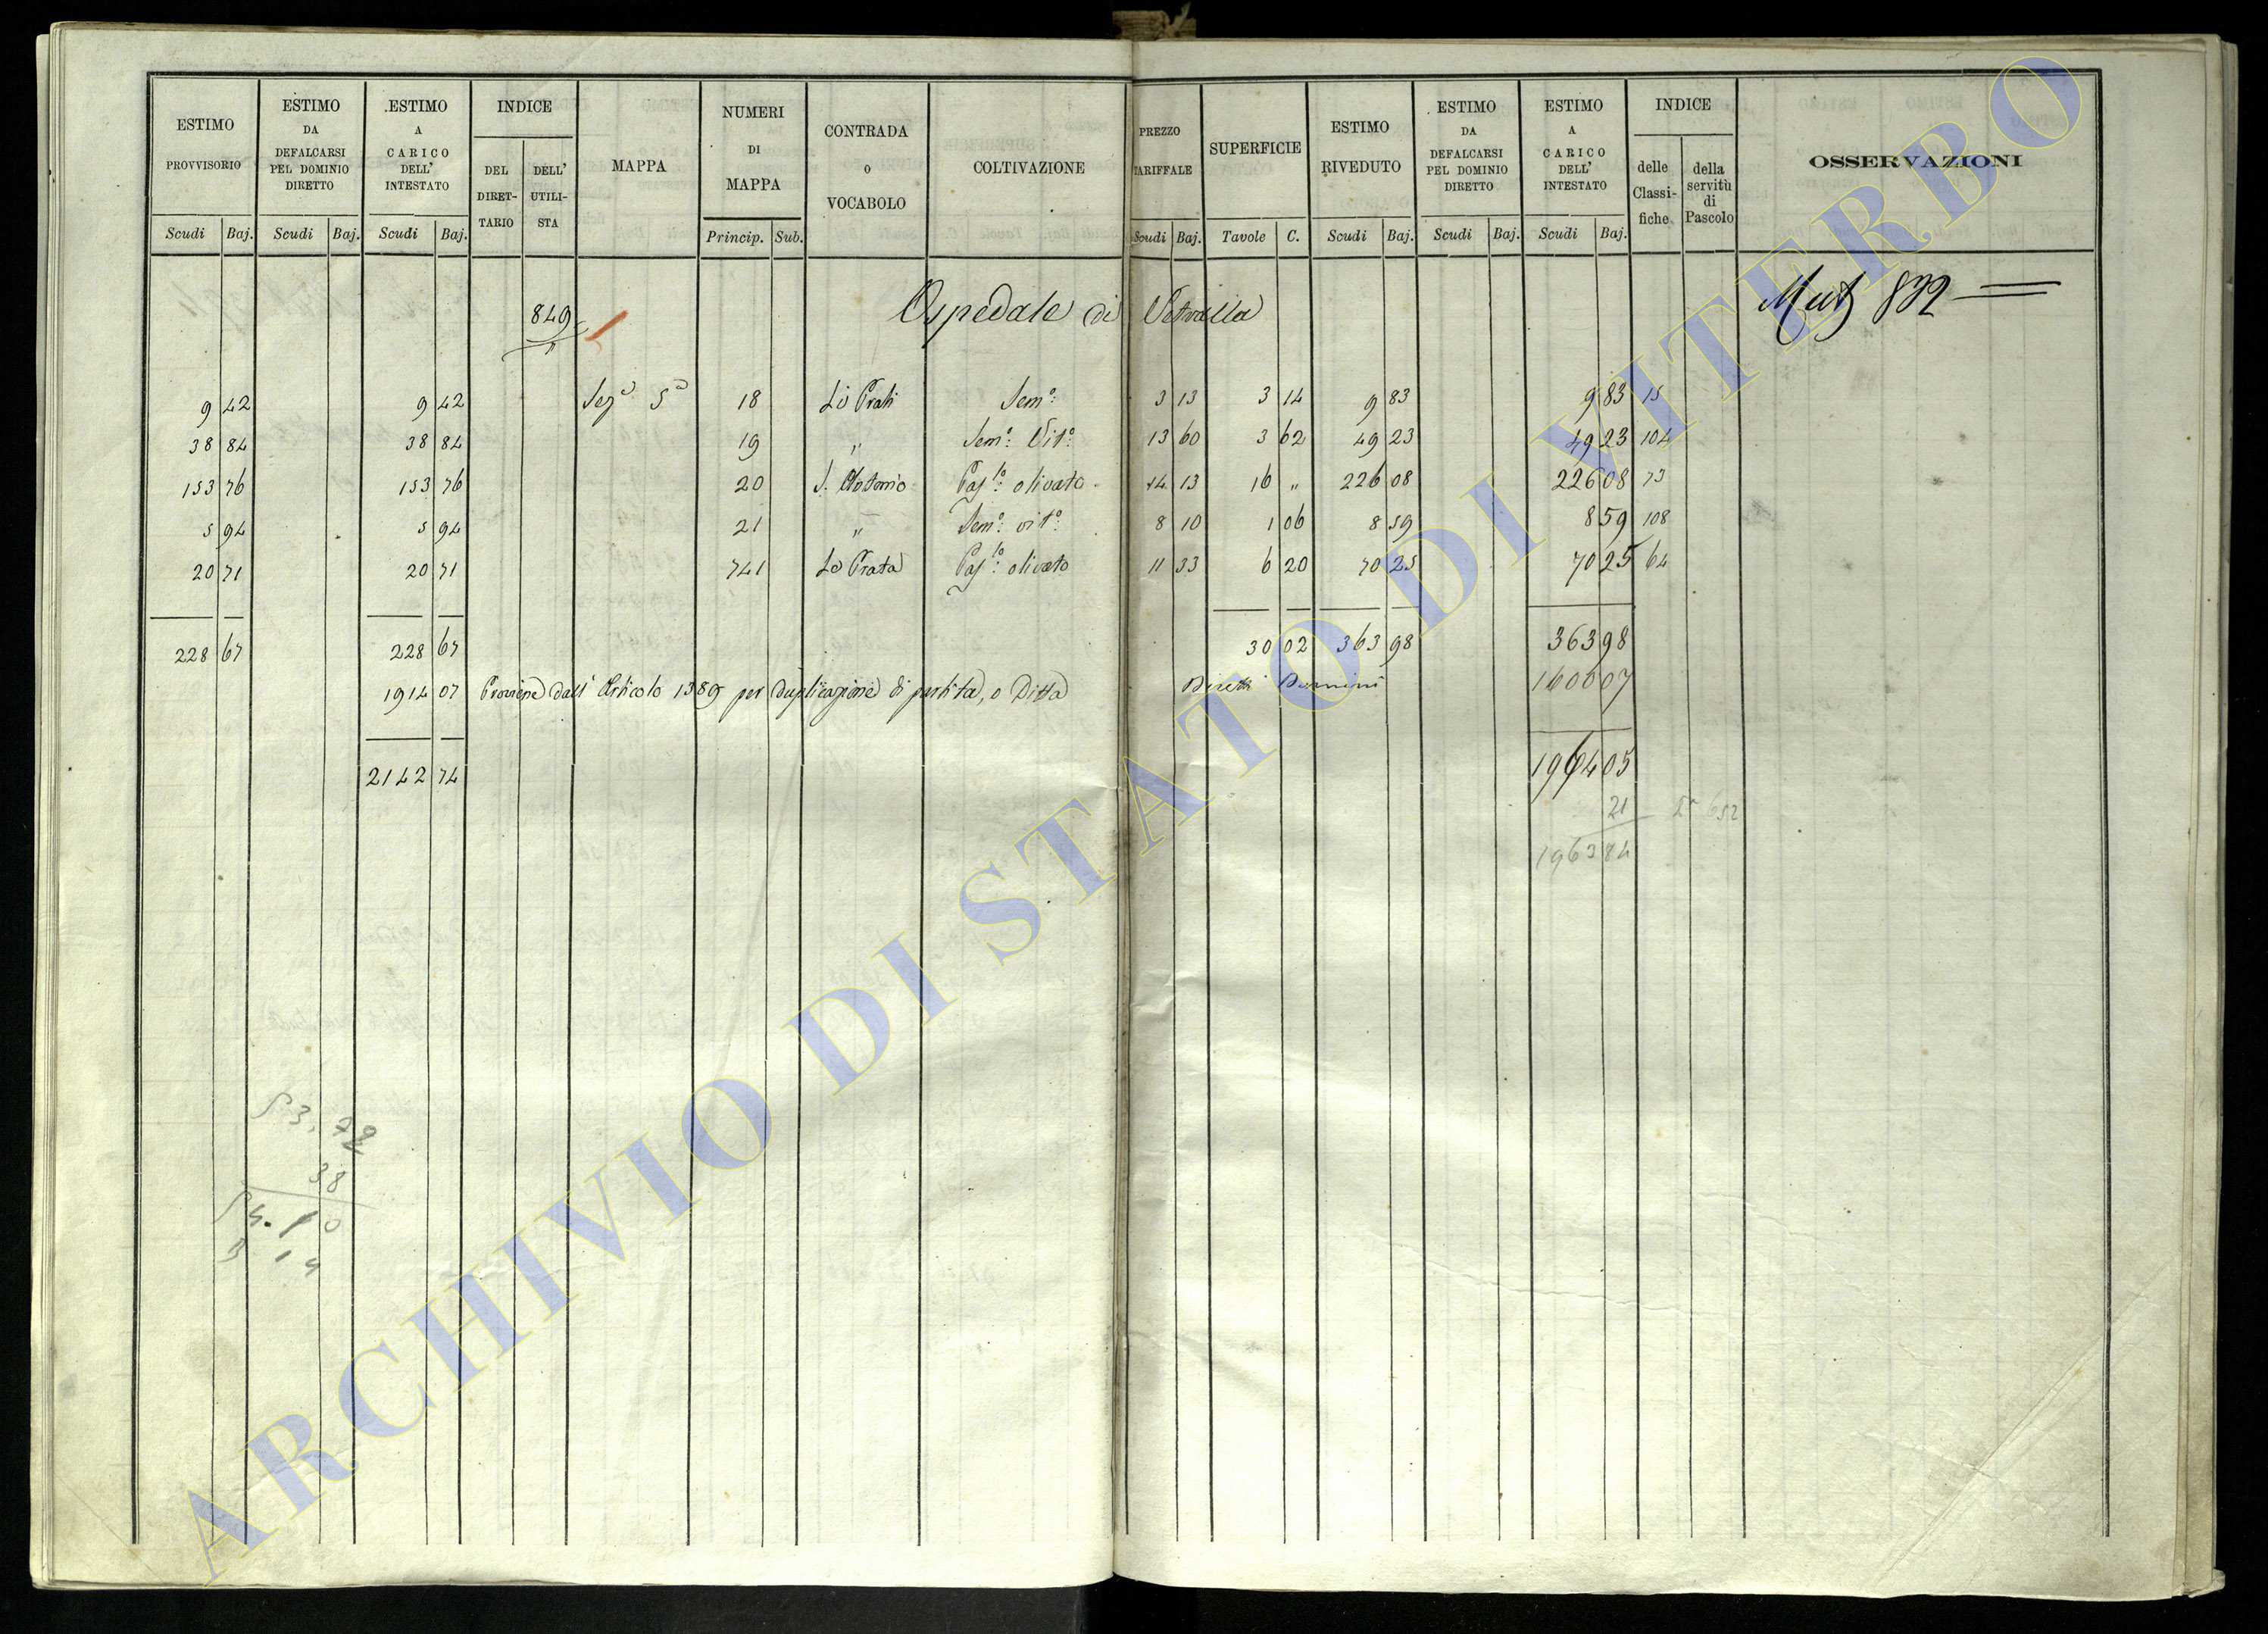 ESTIMO PROVVISORIO | ESTIMO DA DEFALCARSI PEL DOMINIO DIRETTO | ESTIMO A CARICO DELL' INTESTATO | INDICE DEL DIRET-TARIO | DELL' UTILI-STA | MAPPA | NUMERI DI MAPPA | CONTRADA o VOCABOLO | COLTIVAZIONE | PREZZO TARIFFALE | SUPERFICIE | ESTIMO RIVEDUTO | ESTIMO DA DEFALCARSI PEL DOMINIO DIRETTO | ESTIMO A CARICO DELL' INTESTATO | INDICE delle Classi-fiche | della servitù di Pascolo | OSSERVAZIONI
Scudi | Baj. | Scudi | Baj. | Scudi | Baj. | Princip. | Sub. | Scudi | Baj. | Tavole | C. | Scudi | Baj. | Scudi | Baj. | Scudi | Baj.
849 Ospedale di Vetralla Mut 832
9 42 | 9 42 | Sez.ª 5ª | 18 | Li Prati | Sem.º | 3 13 | 3 14 | 9 83 | 9 83 | 15
38 84 | 38 84 | 19 | " | Sem.º Vit.º | 13 60 | 3 62 | 49 23 | 49 23 | 104
153 76 | 153 76 | 20 | S. Antonio | Pas.lo olivato | 14 13 | 16 " | 226 08 | 226 08 | 73
5 94 | 5 94 | 21 | " | Sem.º vit.º | 8 10 | 1 06 | 8 59 | 8 59 | 108
20 71 | 20 71 | 741 | Li Prata | Pas.lo olivato | 11 33 | 6 20 | 70 25 | 70 25 | 64
228 67 | 228 67 | 30 02 | 363 98 | 363 98
1914 07 Proviene dall' Articolo 1389 per duplicazione di partita, o Ditta | Diretti Dominii | 1600 07
2142 74 | 1964 05
21 | 652
1963 84
53.72
38
54.10
3 14
ARCHIVIO DI STATO DI VITERBO